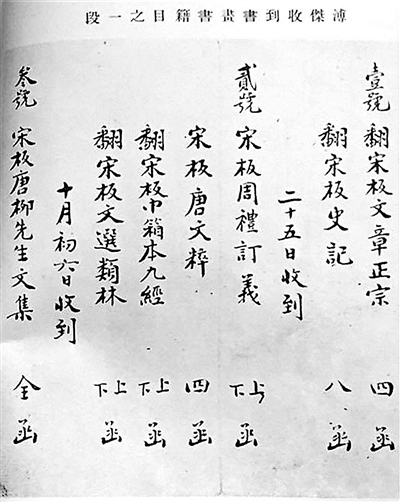 溥傑收到書畫書籍目之一段
壹號 翻宋板文章正宗 四函
翻宋板史記 八函
二十五日收到
貳號 宋板周禮訂義 上下函
宋板唐文粹 四函
翻宋板巾箱本九經 上下函
翻宋板文選類林 上下函
十月初六日收到
叁號 宋板唐柳先生文集 全函